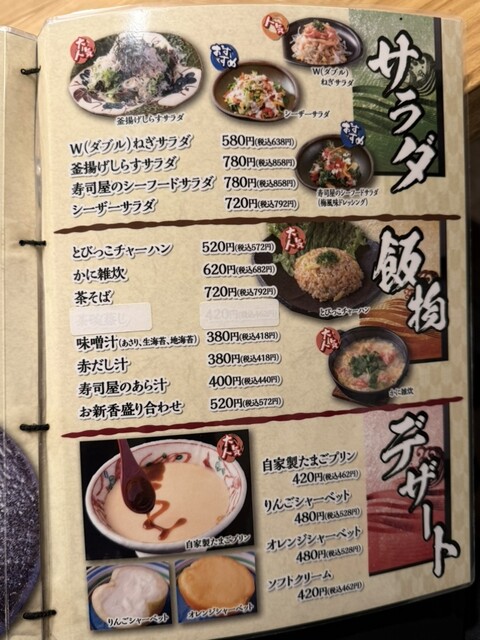 サラダ
大人気
釜揚げしらすサラダ
おすすめ
シーザーサラダ
大人気
W(ダブル)
ねぎサラダ
おすすめ
寿司屋のシーフードサラダ
(梅風味ドレッシング)
W(ダブル)ねぎサラダ 580円(税込638円)
釜揚げしらすサラダ 780円(税込858円)
寿司屋のシーフードサラダ 780円(税込858円)
シーザーサラダ 720円(税込792円)
飯物
とびっこチャーハン 520円(税込572円)
かに雑炊 620円(税込682円)
茶そば 720円(税込792円)
420円
味噌汁(あさり、生海苔、地海苔) 380円(税込418円)
赤だし汁 380円(税込418円)
寿司屋のあら汁 400円(税込440円)
お新香盛り合わせ 520円(税込572円)
大人気
とびっこチャーハン
大人気
かに雑炊
デザート
大人気
自家製たまごプリン
りんごシャーベット
オレンジシャーベット
自家製たまごプリン
420円(税込462円)
りんごシャーベット
480円(税込528円)
オレンジシャーベット
480円(税込528円)
ソフトクリーム
420円(税込462円)